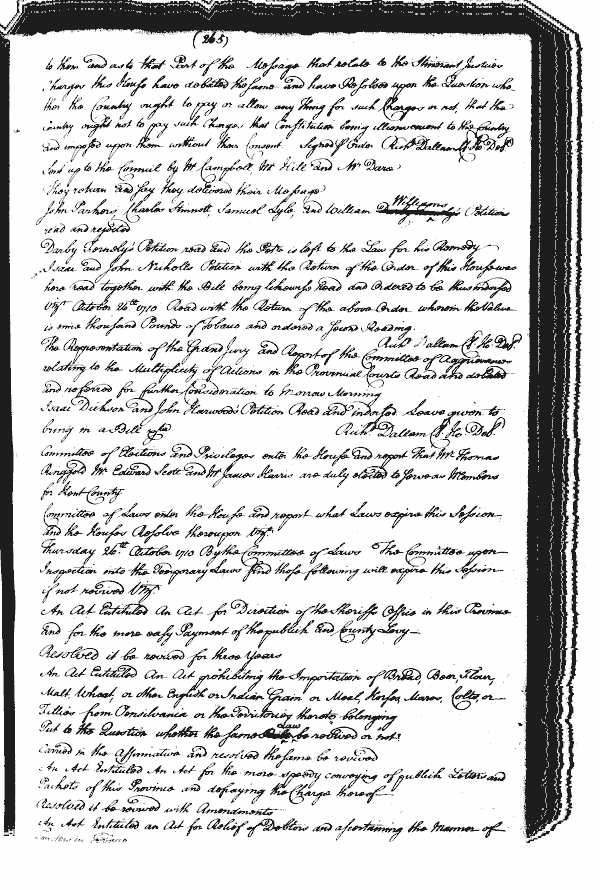 (265)
to them and as to that Part of the Message that relate to the Itinerant Justices
Charges this House have debated the same and have Resolved upon the Question whe
ther the Country ought to pay or allow any thing for such Charges or not, that the
Country ought not to pay such Charges, that Constitution being illconvenient to the Country
and imposed upon them without their Consent Signed p Order Richd Dallam Cl Ho Del
Sent up to the Council by Mr Campbell Mr Hill and Mr Dare
They return and say they delivered their Message
John Parkers, Charles Stinnett, Samuel Lyle, and William Williams Petition
read and rejected
Darby Petition read and the Petr is left to the Law for his Remedy
Isaac and John Nicholls Petition with the Return of the Order of this House was
here read together with the Bill being likewise Read and Ordered to be thus indorsed
Vizt October 26th 1710 Read with the Return of the above Order wherein the Value
is nine thousand Pounds of Tobacco and ordered a Second Reading.
Richd Dallam Cl Ho Del
The Representation of the Grand Jury and Report of the Committee of Aggrievances
relating to the Multiplicity of Actions in the Provincial Courts Read and debated
and referred for further Consideration to Morrow Morning
Isaac Dickson and John Harwood's Petition Read and indorsed Leave given to
bring in a Bill Richd Dallam Cl Ho Del
Committee of Elections and Privileges enter the House and report That Mr Thomas
Ringgold Mr Edward Scott and Mr James Harris are duly elected to serve as Members
for Kent County
Committee of Laws enter the House and report what Laws expire this Session
and the Houses Resolve thereupon Vizt
Thursday 26th October 1710 By the Committee of Laws The Committee upon
Inspection into the Temporary Laws find those following will expire this Session
if not revived Vizt
An Act Entituled An Act for Direction of the Sheriffs Office in this Province
and for the more easy Payment of the publick and County Levy
Resolved it be revived for three years
An Act Entituled An Act prohibiting the Importation of Bread, Beer, Flour,
Malt, Wheat, or other English or Indian Grain or Meal, Horses, Mares, Colts, or
Fillies from Pensilvania or the Territories thereto belonging
Put to the Question whether the same Law be revived or not?
Carried in the Affirmative and resolved the same be revived
An Act Entituled An Act for the more speedy conveying of publick Letters and
Packets of this Province and defraying the Charge thereof
Resolved it be revived with Amendments
An Act Entituled an Act for Relief of Debtors and ascertaining the Manner of